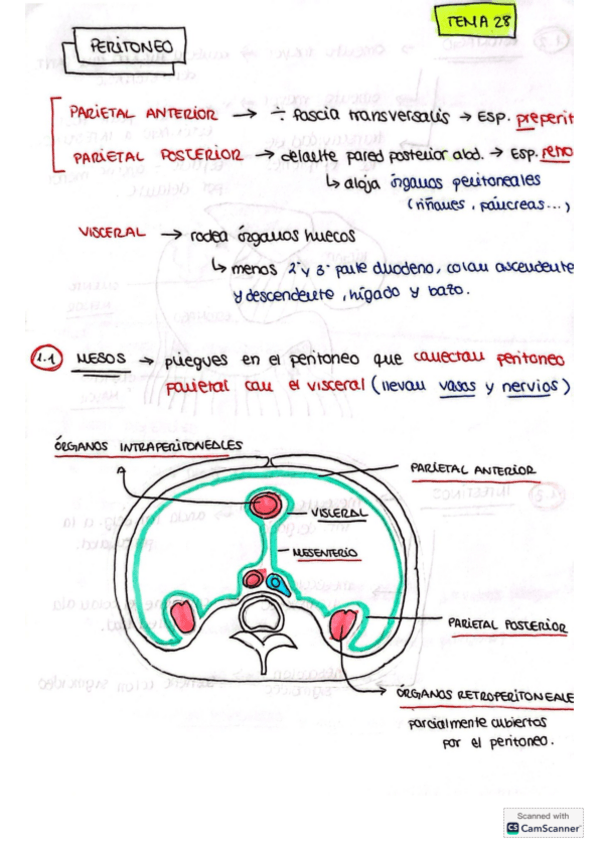 TEMA 28
PERITONEO
PARIETAL ANTERIOR → ÷ fascia transversalis → Esp. preperit
PARIETAL POSTERIOR → delante pared posterior abd. → Esp. retro
↳ aloja órganos peritoneales
(riñones, páncreas...)
VISCERAL → rodea órganos huecos
↳ menos 2ª y 3ª parte duodeno, colon ascendente
y descendente, hígado y bazo.
1.1 MESOS → pliegues en el peritoneo que conectan peritoneo
parietal con el visceral (llevan vasos y nervios)
ÓRGANOS INTRAPERITONEALES
PARIETAL ANTERIOR
VISCERAL
MESENTERIO
PARIETAL POSTERIOR
ÓRGANOS RETROPERITONEALE
parcialmente cubiertos
por el peritoneo.
Scanned with
CS CamScanner